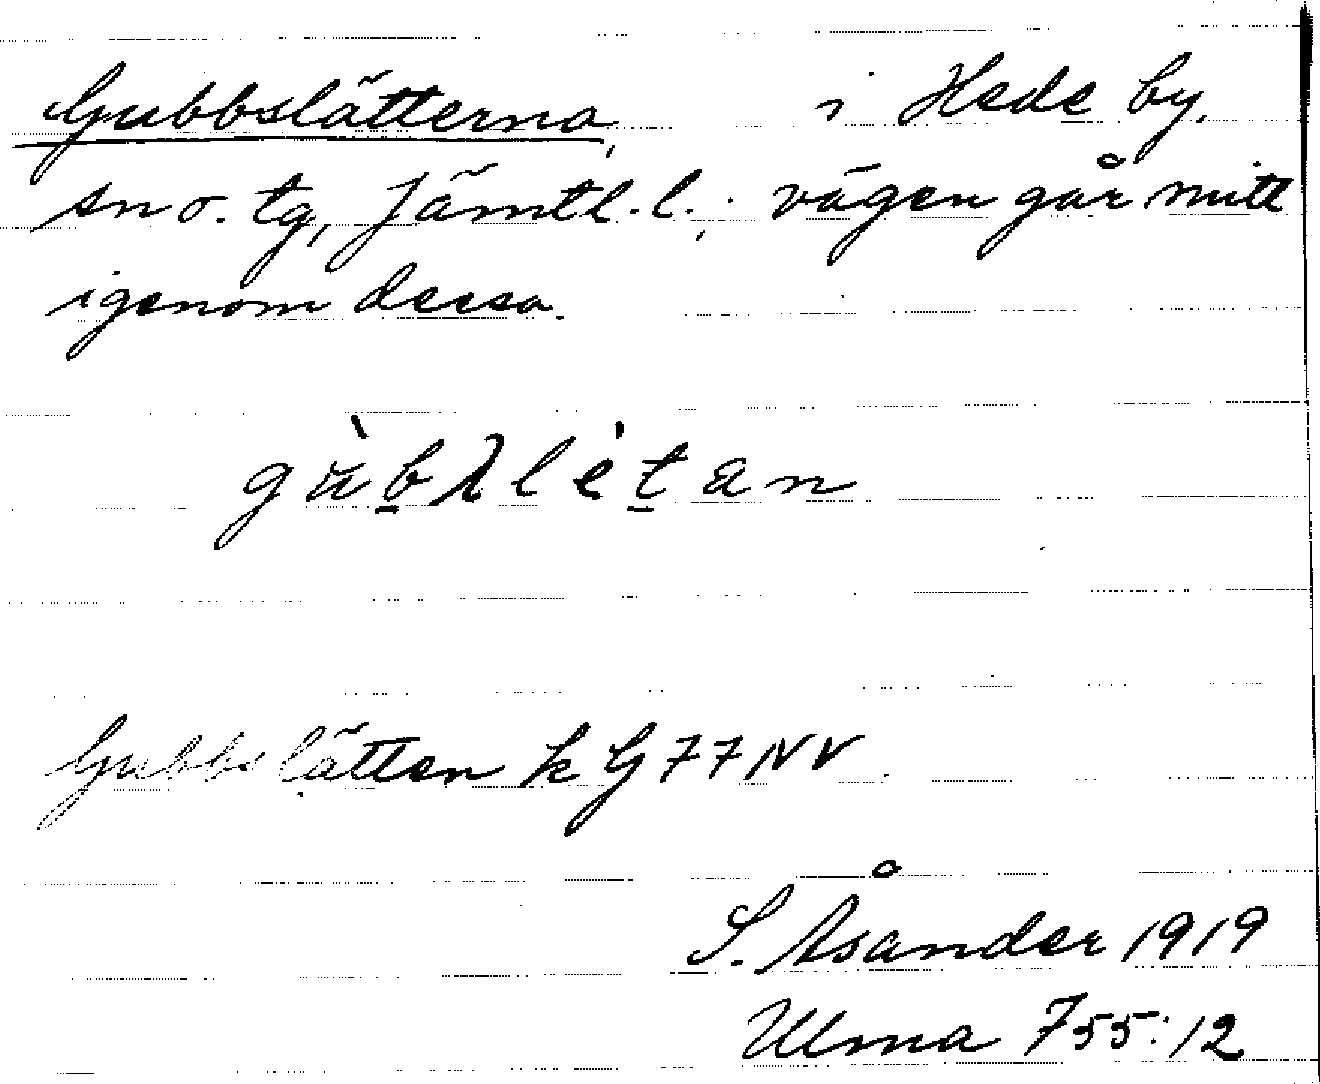 Gubbslätterna, i Hede by,
sn o. tg, Jämtl. l.; vägen går mitt
igenom dessa.
gùbʌlètan
Gubbslätten k G 77 NV
S. Åsander 1919
Ulma 755:12